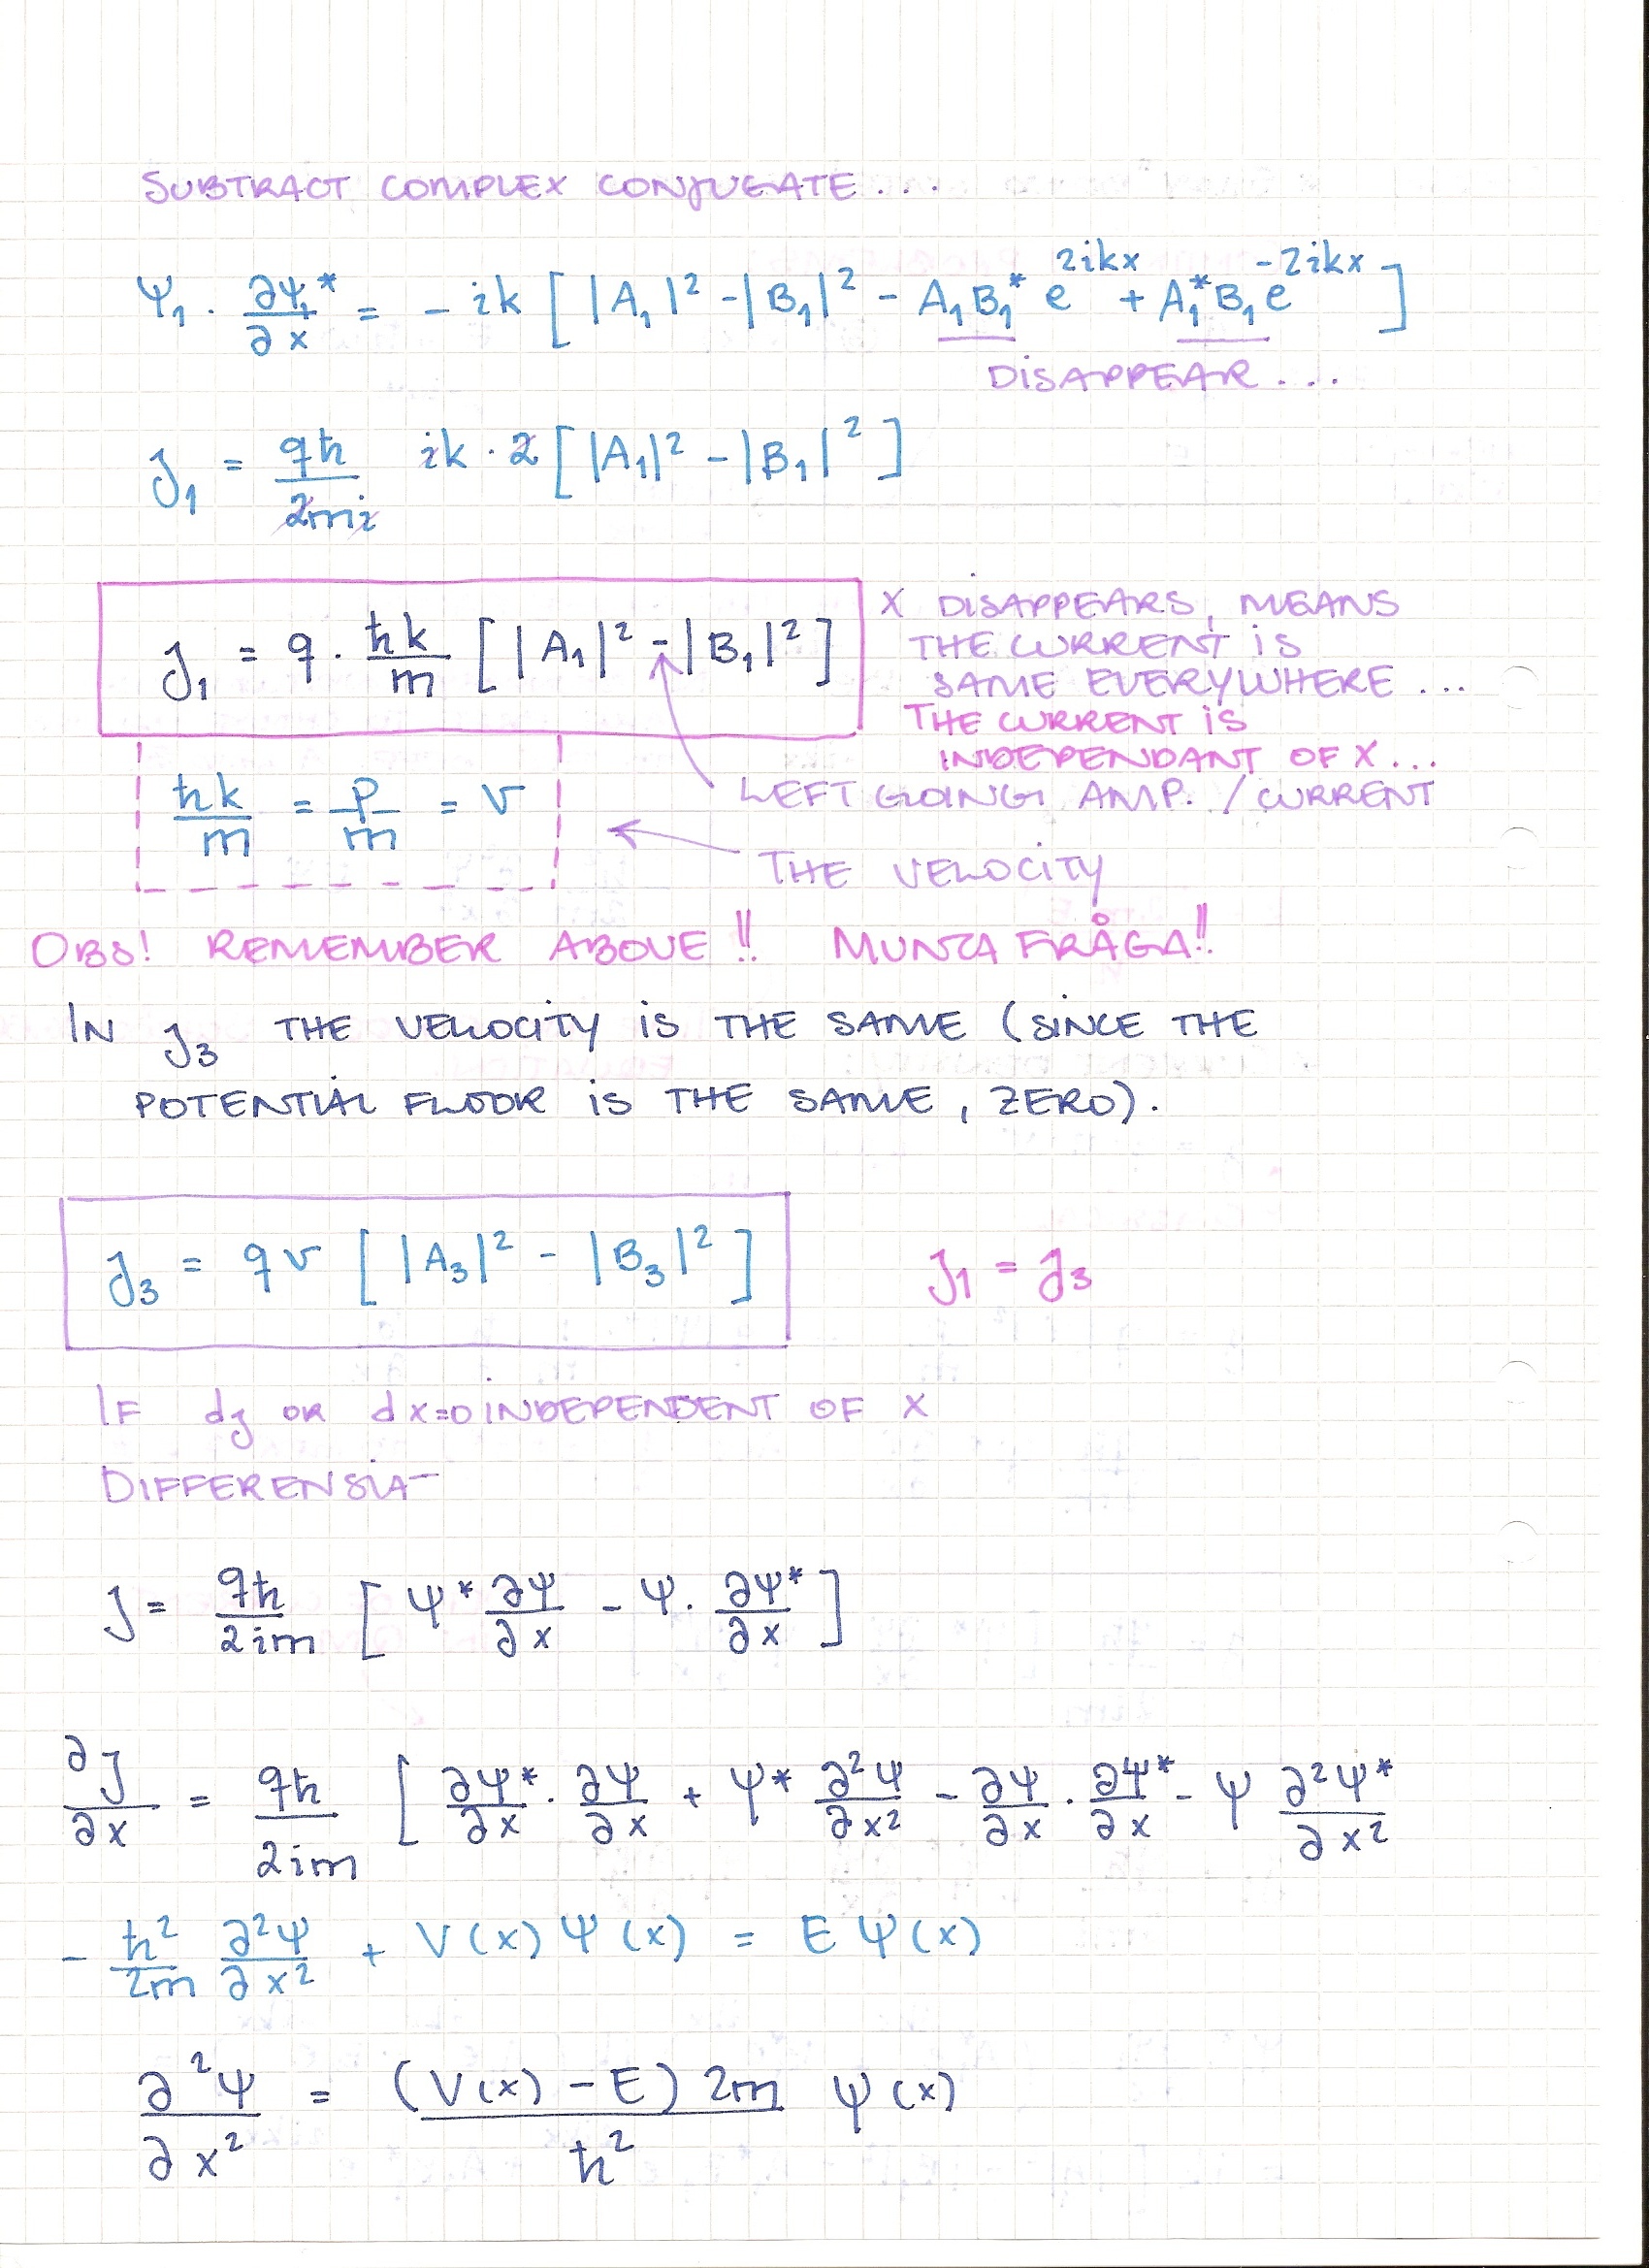 SUBTRACT COMPLEX CONJUGATE...
Ψ₁ · ∂Ψ₁*/∂x = - ik [ |A₁|² - |B₁|² - A₁B₁* e^{2ikx} + A₁*B₁e^{-2ikx} ]
DISAPPEAR...
J₁ = qħ/2mi ik · 2 [ |A₁|² - |B₁|² ]
J₁ = q · ħk/m [ |A₁|² - |B₁|² ]
X DISAPPEARS, MEANS
THE CURRENT IS
SAME EVERYWHERE...
THE CURRENT IS
INDEPENDANT OF X...
LEFT GOING AMP. / CURRENT
ħk/m = p/m = v
THE VELOCITY
OBS! REMEMBER ABOVE!! MUNTA FRÅGA!!
IN J₃ THE VELOCITY IS THE SAME (SINCE THE
POTENTIAL FLOOR IS THE SAME, ZERO).
J₃ = qv [ |A₃|² - |B₃|² ]
J₁ = J₃
IF dj OR dx=0 INDEPENDENT OF X
DIFFERENSIAT
J = qħ/2im [ Ψ* ∂Ψ/∂x - Ψ · ∂Ψ*/∂x ]
∂J/∂x = qħ/2im [ ∂Ψ*/∂x · ∂Ψ/∂x + Ψ* ∂²Ψ/∂x² - ∂Ψ/∂x · ∂Ψ*/∂x - Ψ ∂²Ψ*/∂x²
- ħ²/2m ∂²Ψ/∂x² + V(x) Ψ(x) = E Ψ(x)
∂²Ψ/∂x² = (V(x) - E) 2m/ħ² Ψ(x)